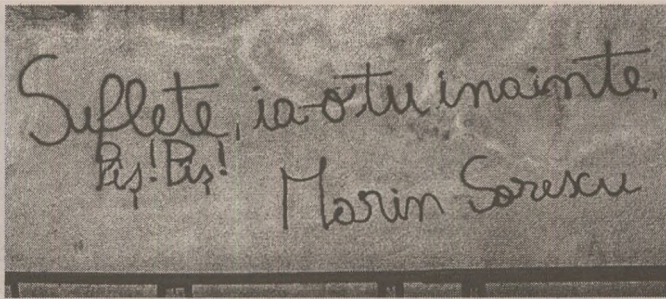 Suflete, ia-o tu inainte,
Piș! Piș!
Marin Sorescu